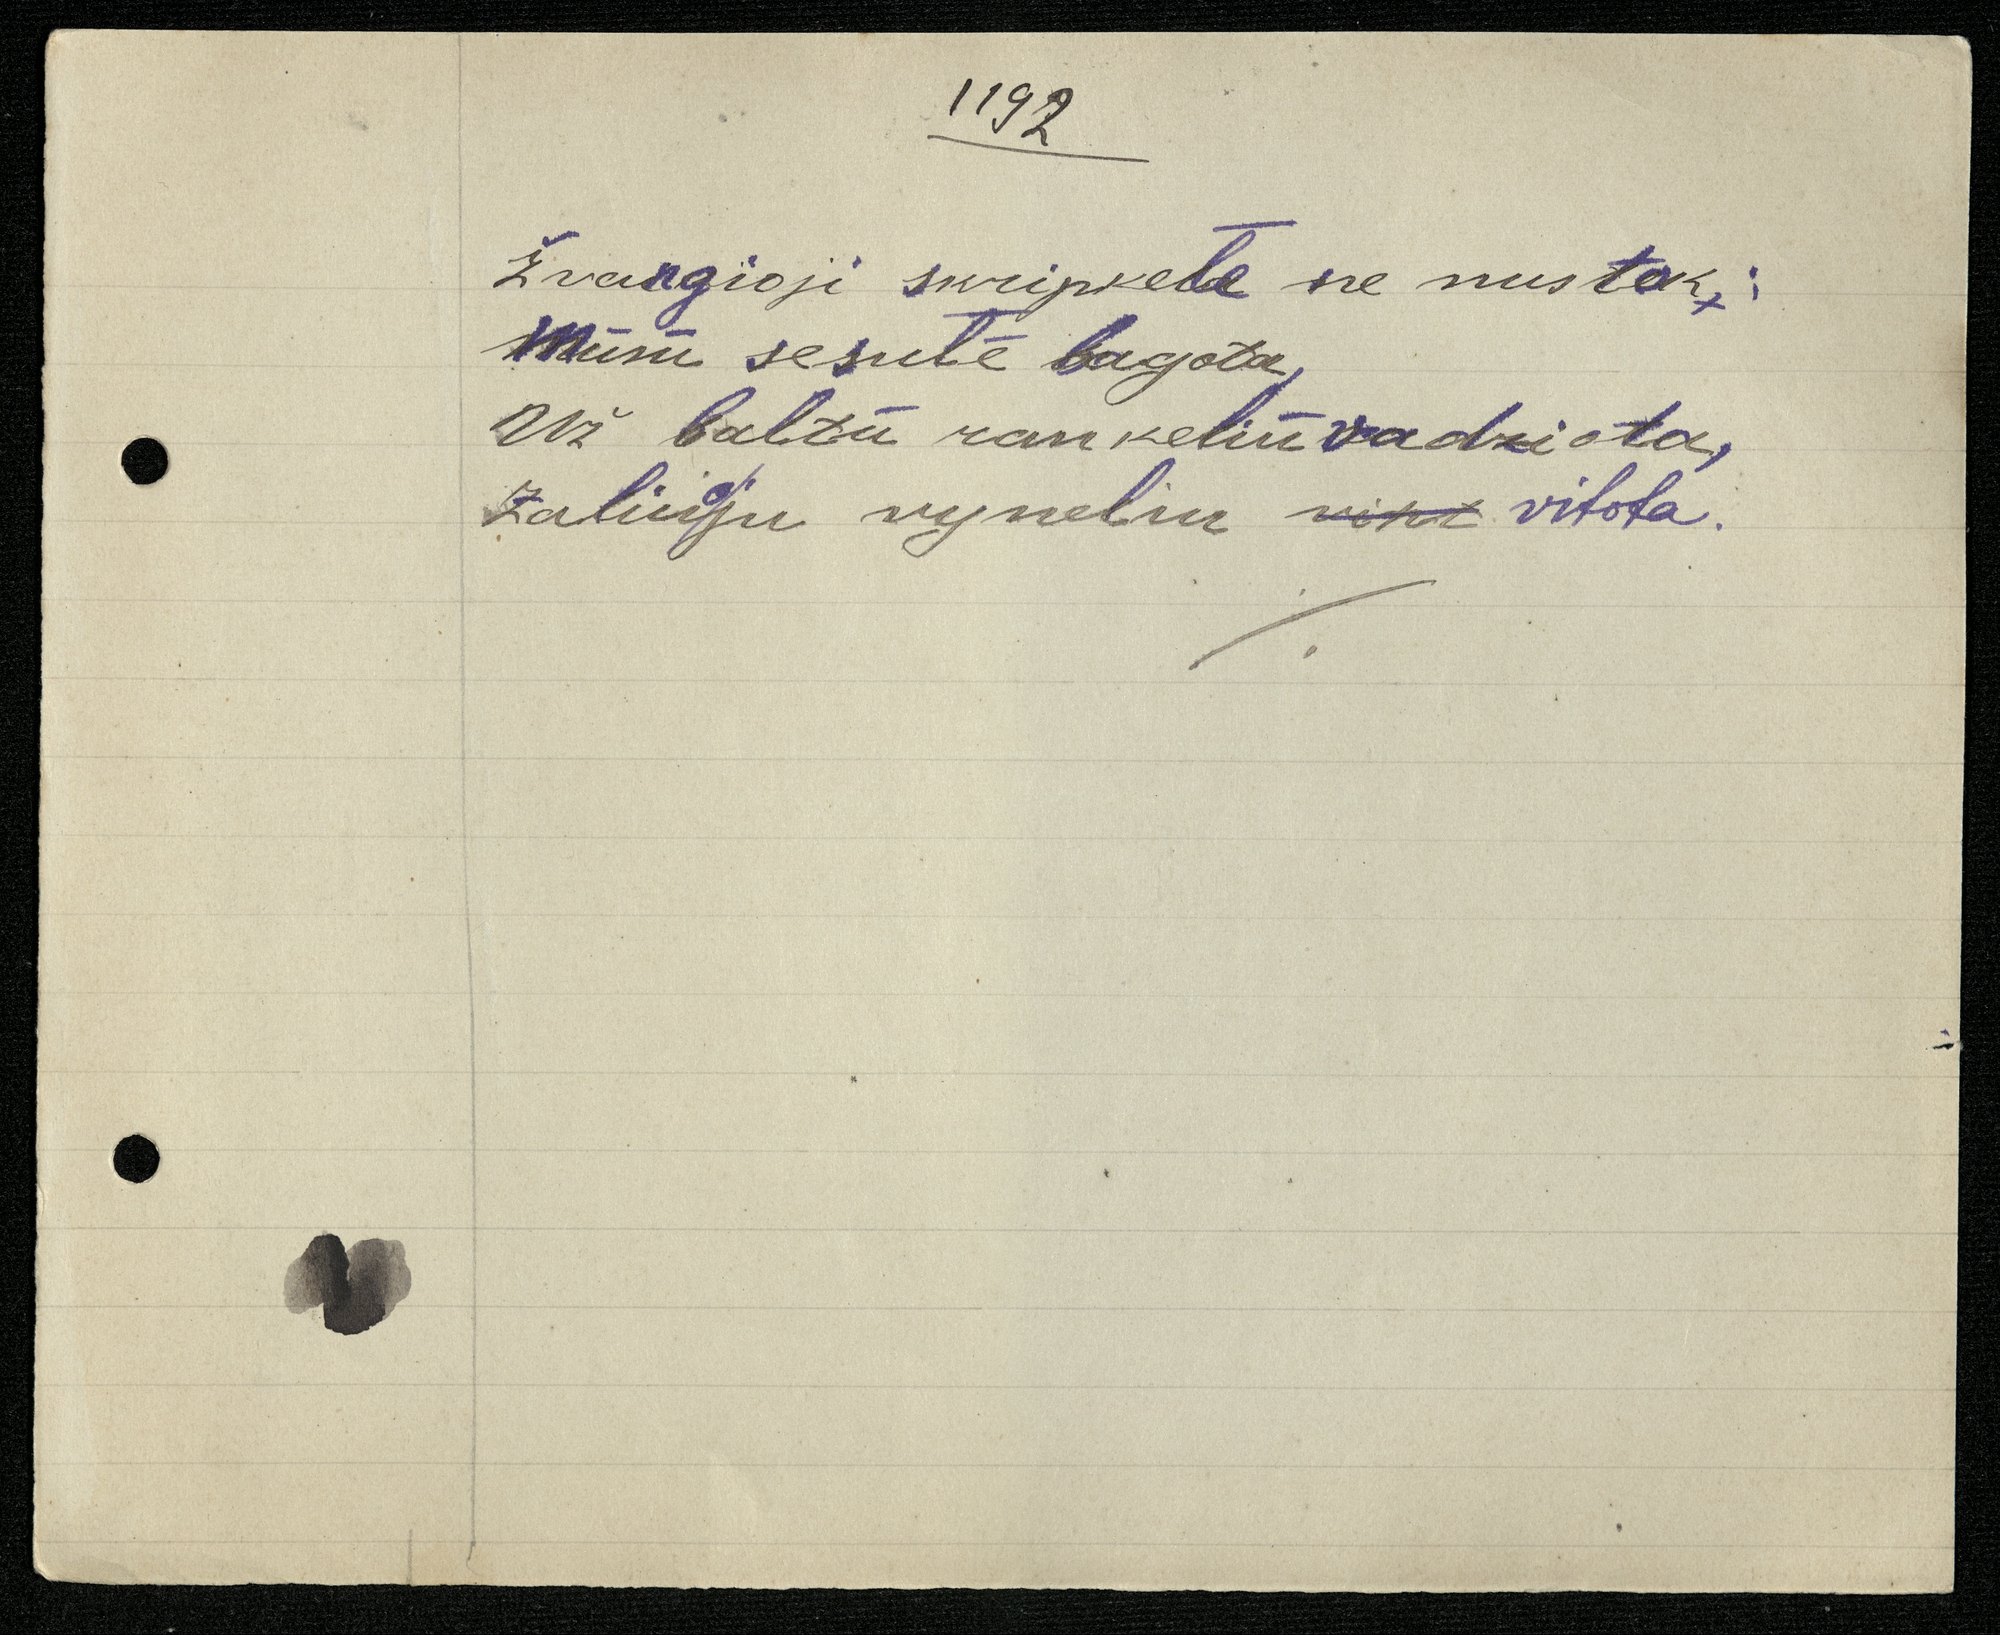 1192
Žvangioji skripkele ne nustok;
Mūsū sesutē bagota,
Už baltū rankeliū vadziota,
Žaliuoju vyneliu vitota.